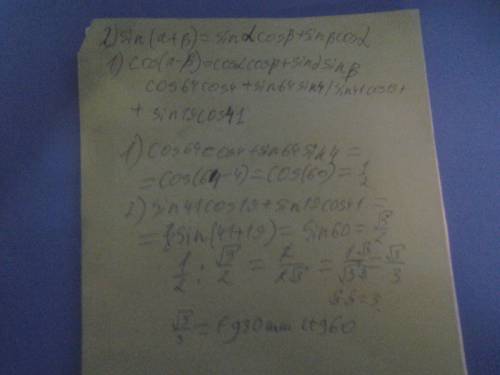 2) sin(α+β)=sinαcosβ+sinβcosα
1) cos(α-β)=cosαcosβ+sinαsinβ
cos64cos4+sin64sin4/sin41cos19+
+ sin19cos41
1) cos64cos4+sin64sin4=
=cos(64-4)=cos(60)=1/2
2) sin41cos19+sin19cos41=
=sin(41+19)=sin60=√3/2
1/2 : √3/2 = =√3/3
√3/3=tg30 или ctg60